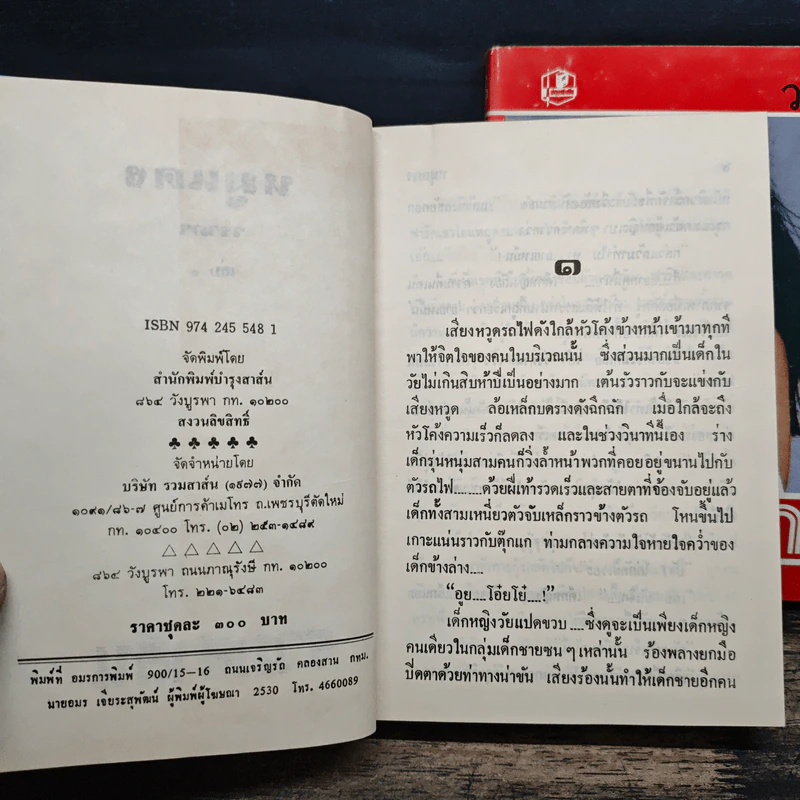 ISBN 974 245 548 1
จัดพิมพ์โดย
สำนักพิมพ์บำรุงสาส์น
๘๖๔ วังบูรพา กท. ๑๐๒๐๐
สงวนลิขสิทธิ์
♣ ♣ ♣ ♣ ♣
จัดจำหน่ายโดย
บริษัท รวมสาส์น (๑๙๗๗) จำกัด
๑๐๙๑/๘๖-๗ ศูนย์การค้าเมโทร ถ.เพชรบุรีตัดใหม่
กท. ๑๐๔๐๐ โทร. (๐๒) ๒๕๓-๑๔๘๙
△ △ △ △ △
๘๖๔ วังบูรพา ถนนภาณุรังษี กท. ๑๐๒๐๐
โทร. ๒๒๑-๖๔๘๓
ราคาชุดละ ๓๐๐ บาท
พิมพ์ที่ อมรการพิมพ์ 900/15-16 ถนนเจริญรัถ คลองสาน กทม.
นายอมร เจียระสุพัฒน์ ผู้พิมพ์ผู้โฆษณา 2530 โทร. 4660089
๑
เสียงหวูดรถไฟดังใกล้หัวโค้งข้างหน้าเข้ามาทุกที
พาให้จิตใจของคนในบริเวณนั้น ซึ่งส่วนมากเป็นเด็กใน
วัยไม่เกินสิบห้าปีเป็นอย่างมาก เต้นรัวราวกับจะแข่งกับ
เสียงหวูด ล้อเหล็กบดรางดังฉึกฉัก เมื่อใกล้จะถึง
หัวโค้งความเร็วก็ลดลง และในช่วงวินาทีนี้เอง ร่าง
เด็กรุ่นหนุ่มสามคนก็วิ่งล้ำหน้าพวกที่คอยอยู่ขนานไปกับ
ตัวรถไฟ........ด้วยฝีเท้ารวดเร็วและสายตาที่จ้องจับอยู่แล้ว
เด็กทั้งสามเหนี่ยวตัวจับเหล็กราวข้างตัวรถ โหนขึ้นไป
เกาะแน่นราวกับตุ๊กแก ท่ามกลางความใจหายใจคว่ำของ
เด็กข้างล่าง....
“อูย....โอ๋ยโย๋....!”
เด็กหญิงวัยแปดขวบ....ซึ่งดูจะเป็นเพียงเด็กหญิง
คนเดียวในกลุ่มเด็กชายซน ๆ เหล่านั้น ร้องพลางยกมือ
ปิดตาด้วยท่าทางน่าขัน เสียงร้องนั้นทำให้เด็กชายอีกคน